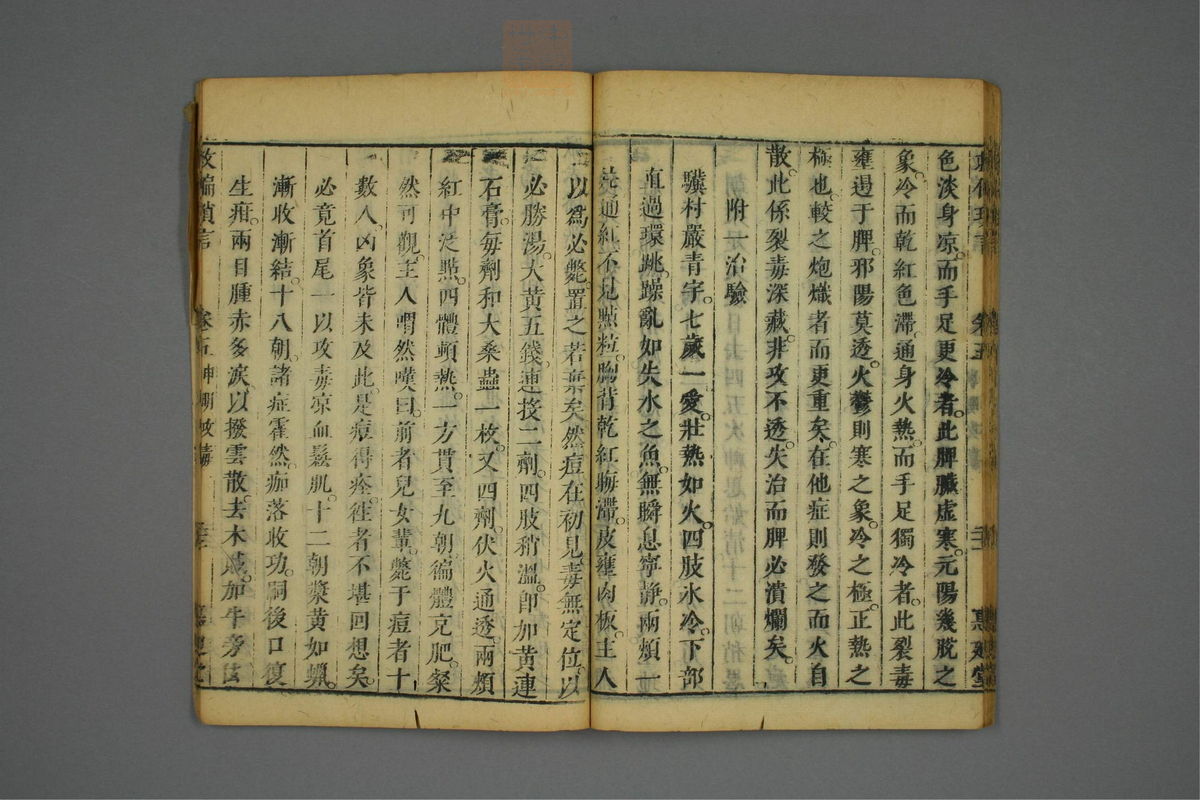 色淡身凉。而手足更冷者。此脾臟虛寒。元陽幾脫之
象。冷而乾紅色滯。通身火熱。而手足獨冷者。此裂毒
壅遏于脾。邪陽莫透。火鬱則寒之象。冷之極。正熱之
極也。較之炮熾者而更重矣。在他症則發之而火自
散。此係裂毒深藏。非攻不透。失治而脾必潰爛矣。
附一治驗
驥村嚴青宇。七歲一愛。壯熱如火。四肢氷冷。下部
直過環跳。躁亂如失水之魚。無瞬息寧静。兩頰一
通紅。不見點粒。胸背乾紅晦滯。皮壅肉板。主人
以爲必斃。置之若棄矣。然痘在初見。毒無定位。以
必勝湯。大黃五錢。連投二劑。四肢稍溫。卽加黃連
石膏。每劑和大桑蟲一枚。又四劑。伏火通透。兩頰
紅中泛點。四體頓熱。一方貫至九朝。徧體充肥。粲
然可觀。主人喟然嘆曰。前者兒女輩。斃于痘者十
數人。凶象皆未及此。是痘得痊。徃者不堪回想矣。
必竟首尾一以攻毒凉血鬆肌。十二朝漿黃如蠟。
漸收漸結。十八朝。諸症霍然。痂落收功。嗣後口復
生疳。兩目腫赤多淚。以撥雲散。去木賊。加牛旁